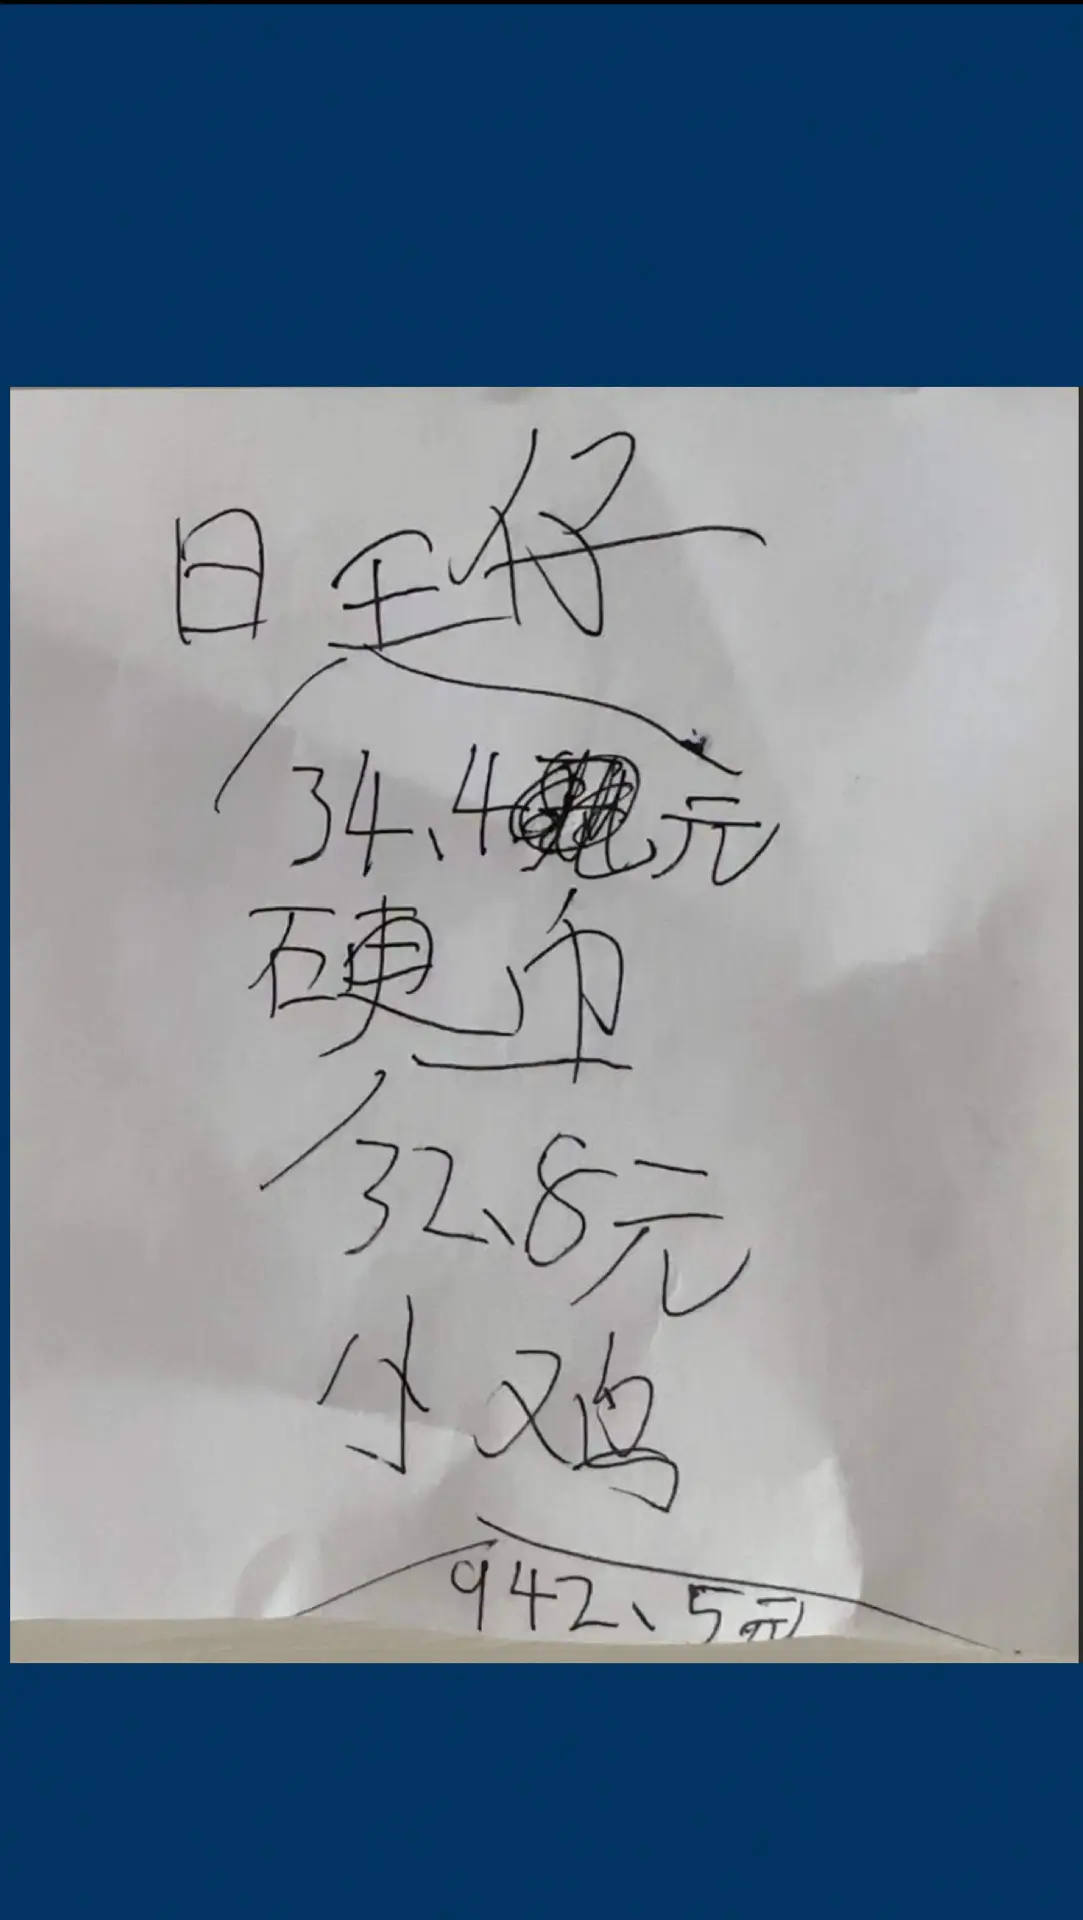 日 仔
34、4元
硬币
32、8元
小鸡
942、5元